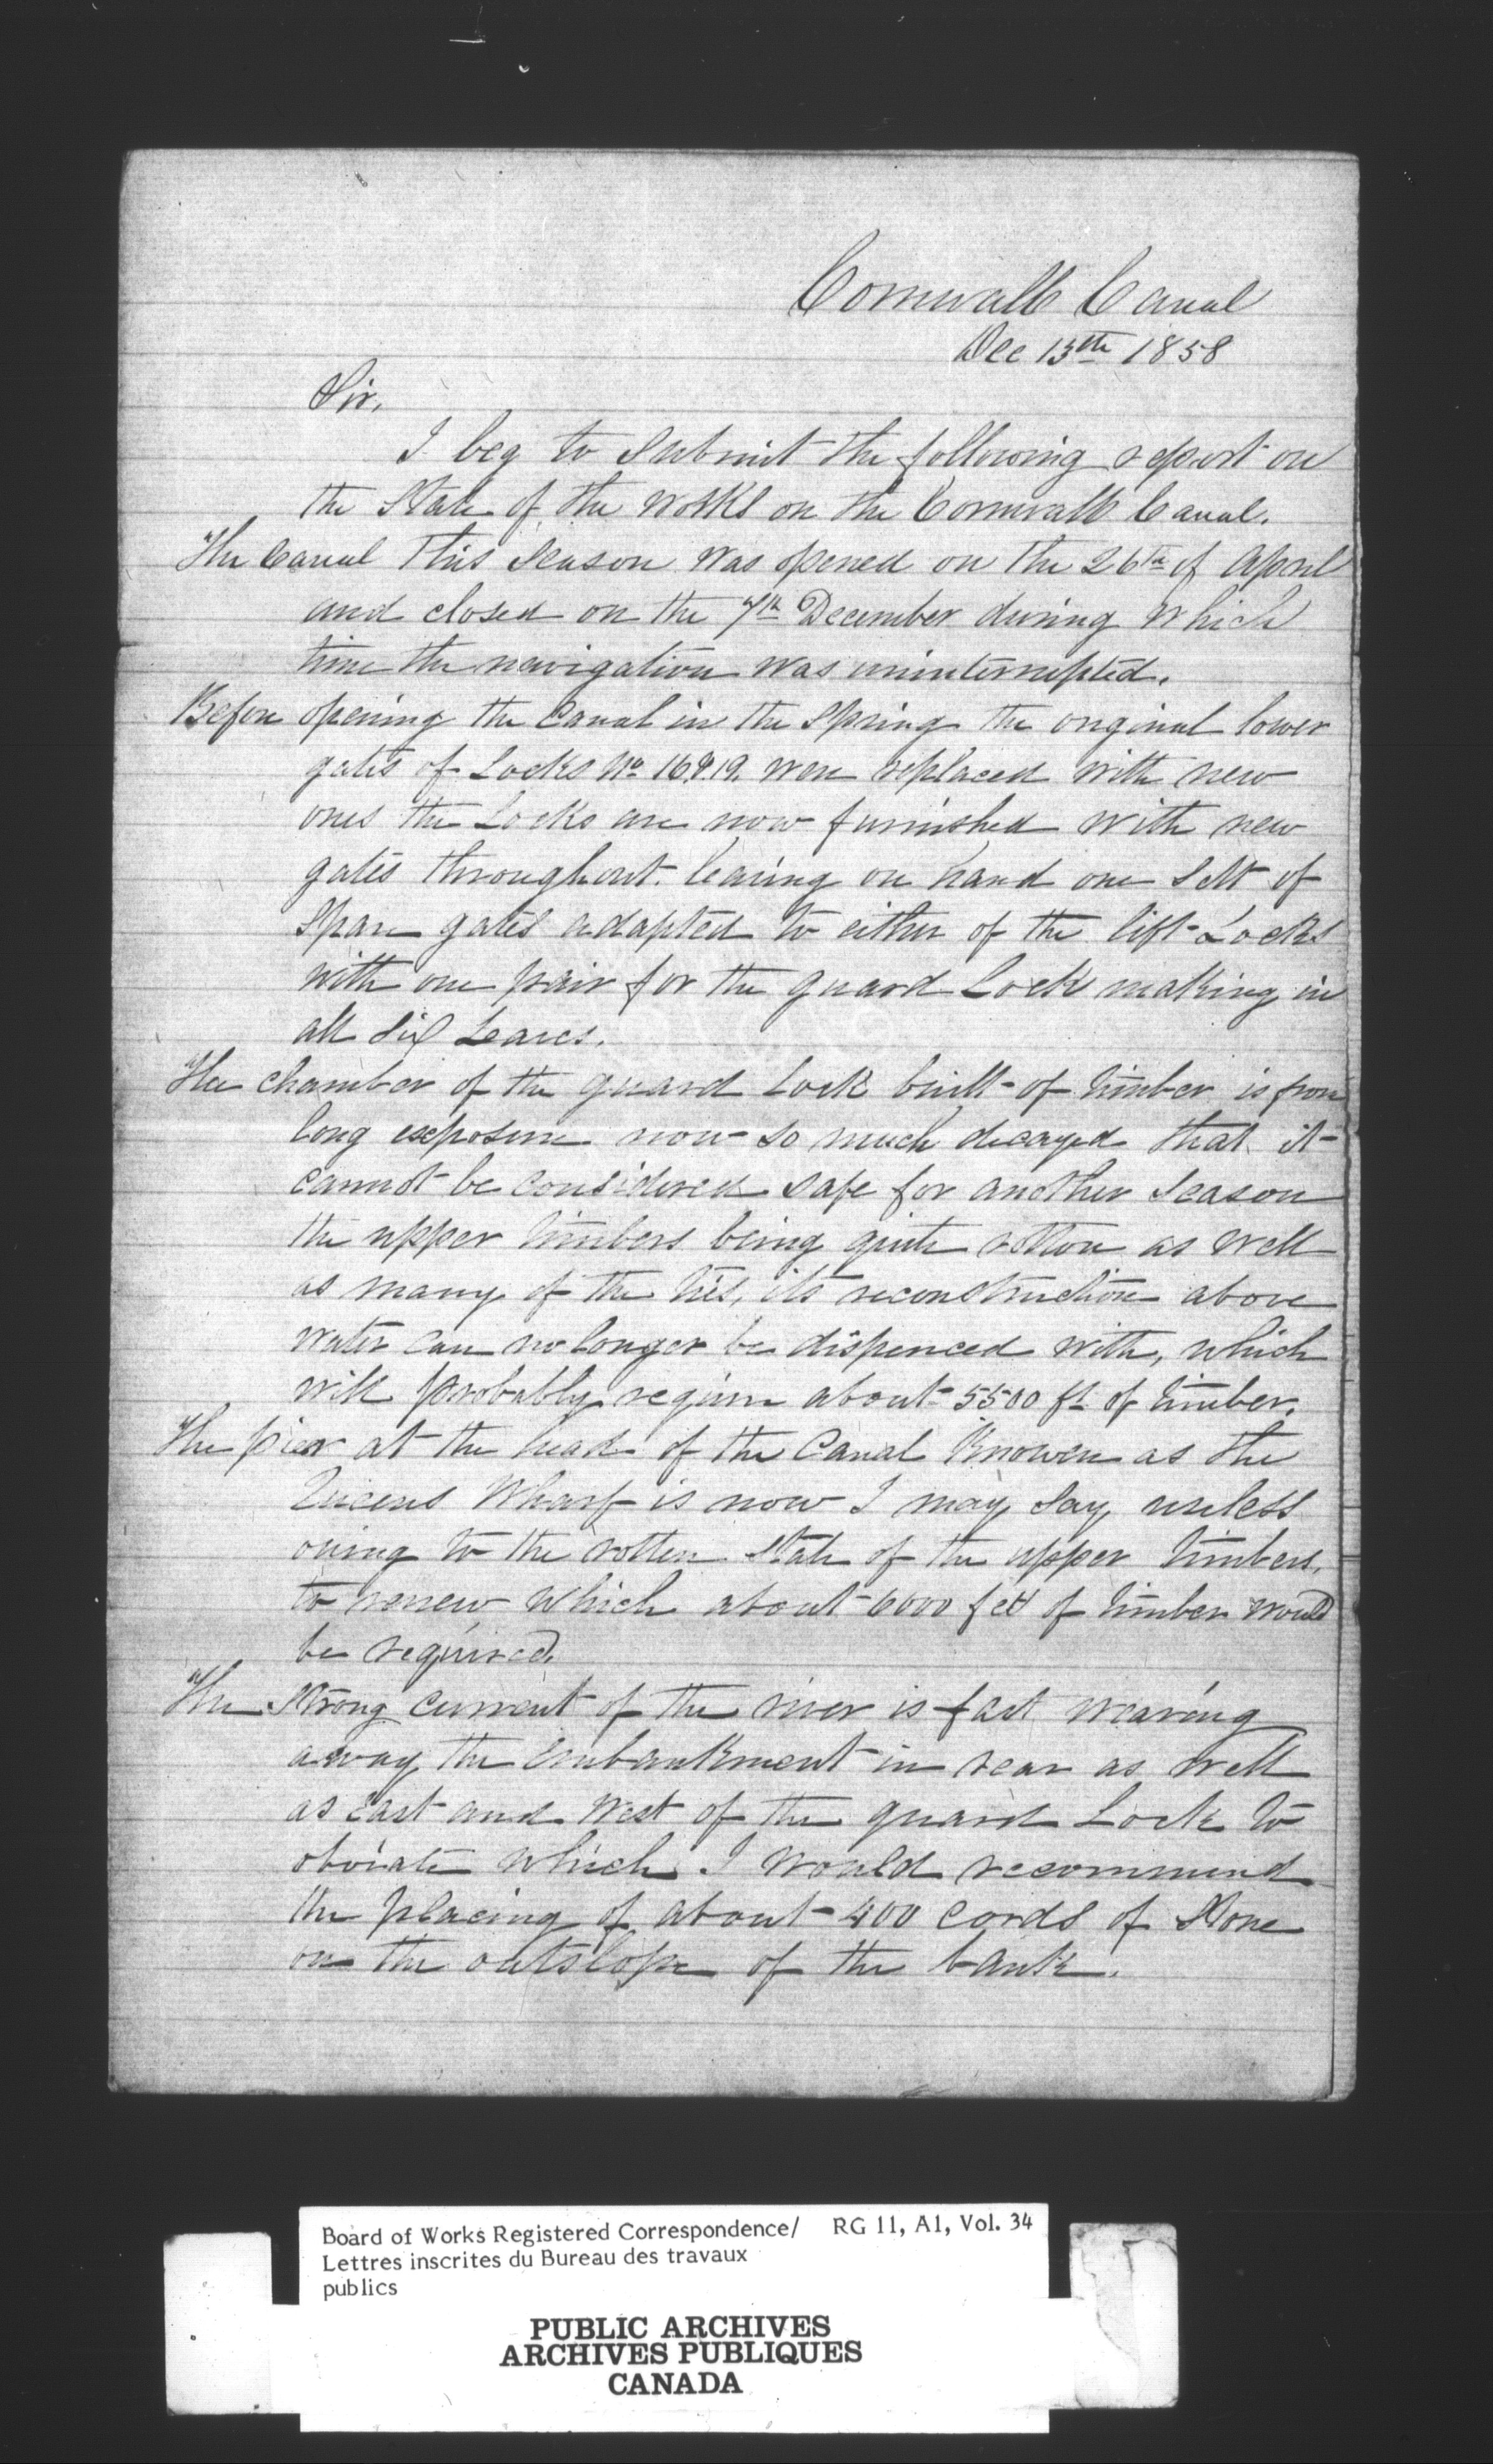 Cornwall Canal
Dec 13th 1858
Sir,
I beg to submit the following report on
the State of the Works on the Cornwall Canal.
The Canal This Season was opened on the 26th of April
and closed on the 7th December during which
time the navigation was uninterrupted.
Before opening the Canal in the Spring the original lower
gates of Locks No. 16 & 19. were replaced with new
ones the Locks are now furnished with new
gates throughout. leaving on hand one Sett of
Spare gates adapted to either of the lift Locks
with one pair for the guard Lock making in
all Six Leaves.
The chamber of the guard Lock built of timber is from
long exposure now so much decayed that it
cannot be considered safe for another Season
the upper timbers being quite rotton as well
as many of the ties, its reconstruction above
water can no longer be dispenced with, which
will probably require about 5500 ft of timber.
The pier at the head of the Canal Knowen as the
Queens Wharf is now I may say useless
owing to the rotten State of the upper timbers,
to renew which about 6000 feet of timber would
be required.
The Strong Current of the river is fast wearing
away the Embankment in rear as well
as East and West of the guard Lock to
obviate which I would recommend
the placing of about 400 cords of Stone
on the outslope of the bank.
Board of Works Registered Correspondence/ RG 11, A1, Vol. 34
Lettres inscrites du Bureau des travaux
publics
PUBLIC ARCHIVES
ARCHIVES PUBLIQUES
CANADA